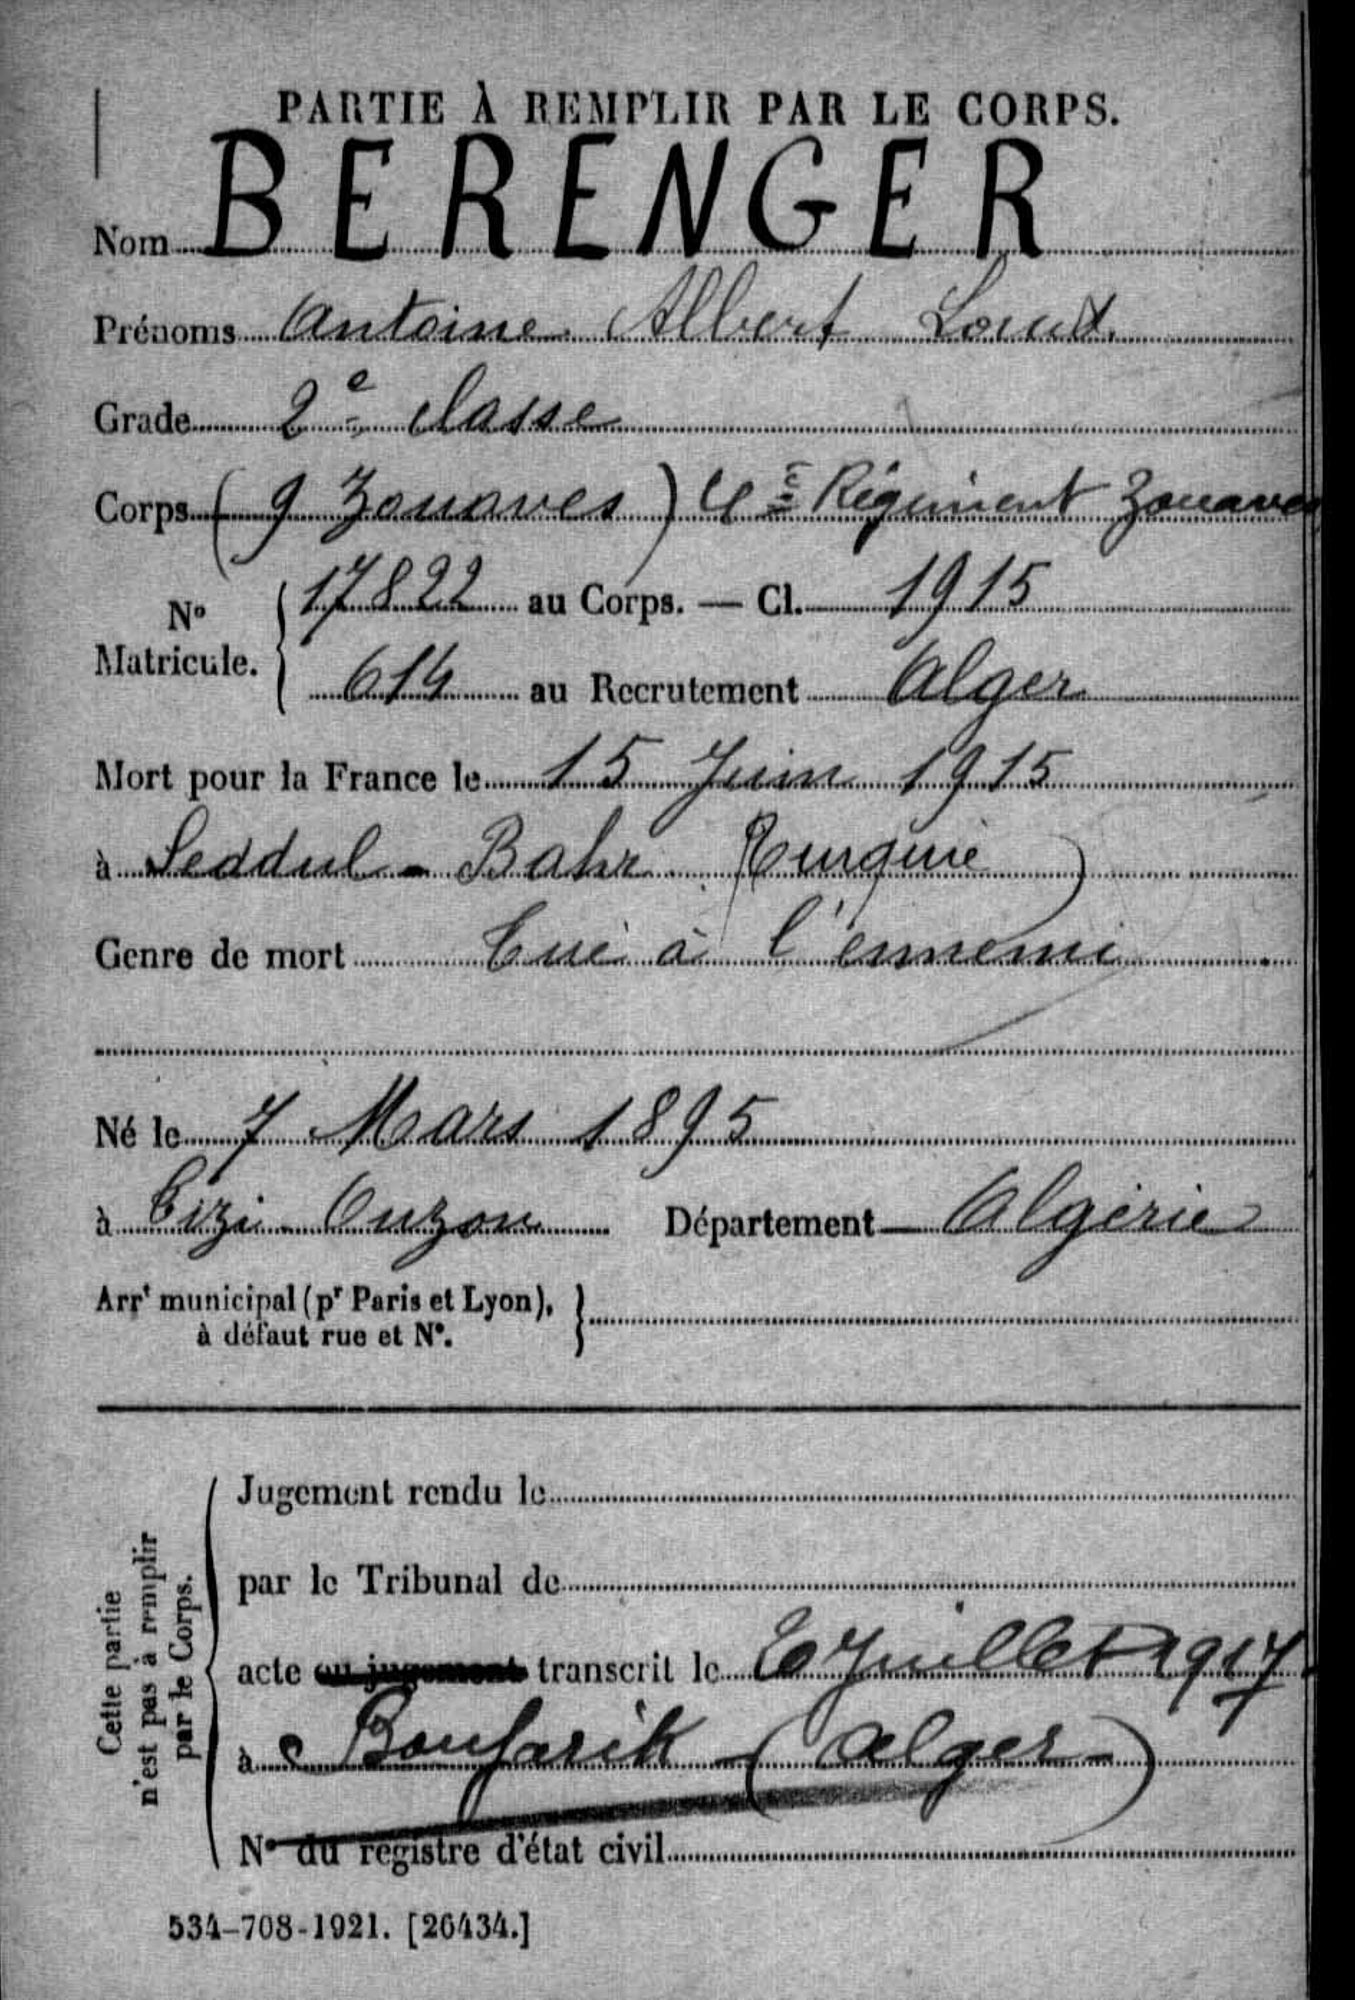 PARTIE À REMPLIR PAR LE CORPS.
Nom BERENGER
Prénoms Antoine Albert
Grade 2e classe
Corps (9 Zouaves) 4e Régiment Zouaves
No Matricule. { 17822 au Corps. — Cl. 1915
614 au Recrutement Alger
Mort pour la France le 15 Juin 1915
à Seddul-Bahr (Turquie)
Genre de mort Tué à l'ennemi
Né le 7 Mars 1895
à Tizi-Ouzou Département Algérie
Arrt municipal (pr Paris et Lyon), }
à défaut rue et No.
Cette partie
n'est pas à remplir
par le Corps.
Jugement rendu le
par le Tribunal de
acte ou jugement transcrit le Juillet 1917
à Boufarik (Alger)
No du registre d'état civil
534-708-1921. [26434.]